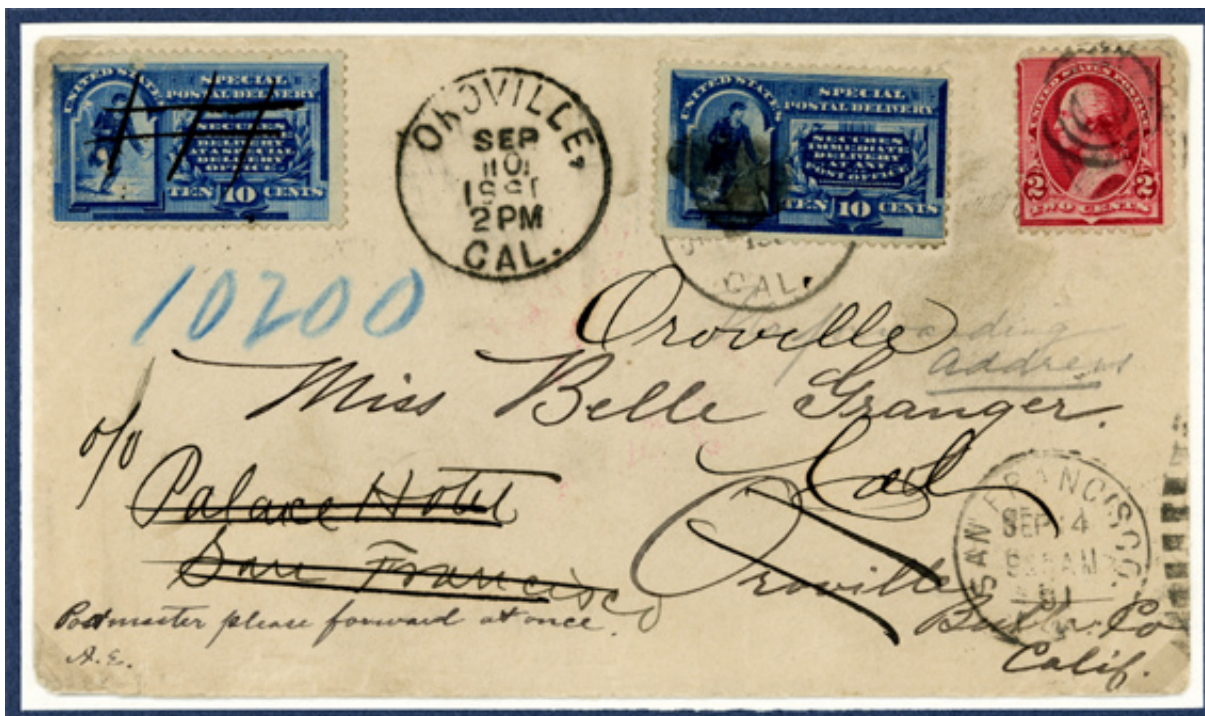 UNITED STATES
SPECIAL
POSTAL DELIVERY
SECURES
DELIVERY
AT A SPECIAL
DELIVERY
OFFICE
TEN 10 CENTS
OROVILLE,
SEP
10
2 PM
CAL.
UNITED STATES
SPECIAL
POSTAL DELIVERY
SECURES
IMMEDIATE
DELIVERY
AT ANY
POST OFFICE
TEN 10 CENTS
CAL.
UNITED STATES POSTAGE
2 2
TWO CENTS
10200
Oroville
forwarding
address
Miss Belle Granger.
Cal
Palace Hotel
San Francisco
Oroville
Butte. Co
Calif.
SAN FRANCISCO
SEP 14
AM
91
Postmaster please forward at once.
A.E.